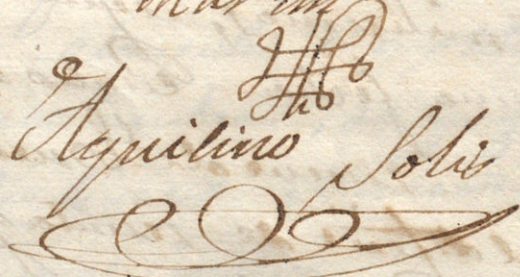 Aquilino Solis